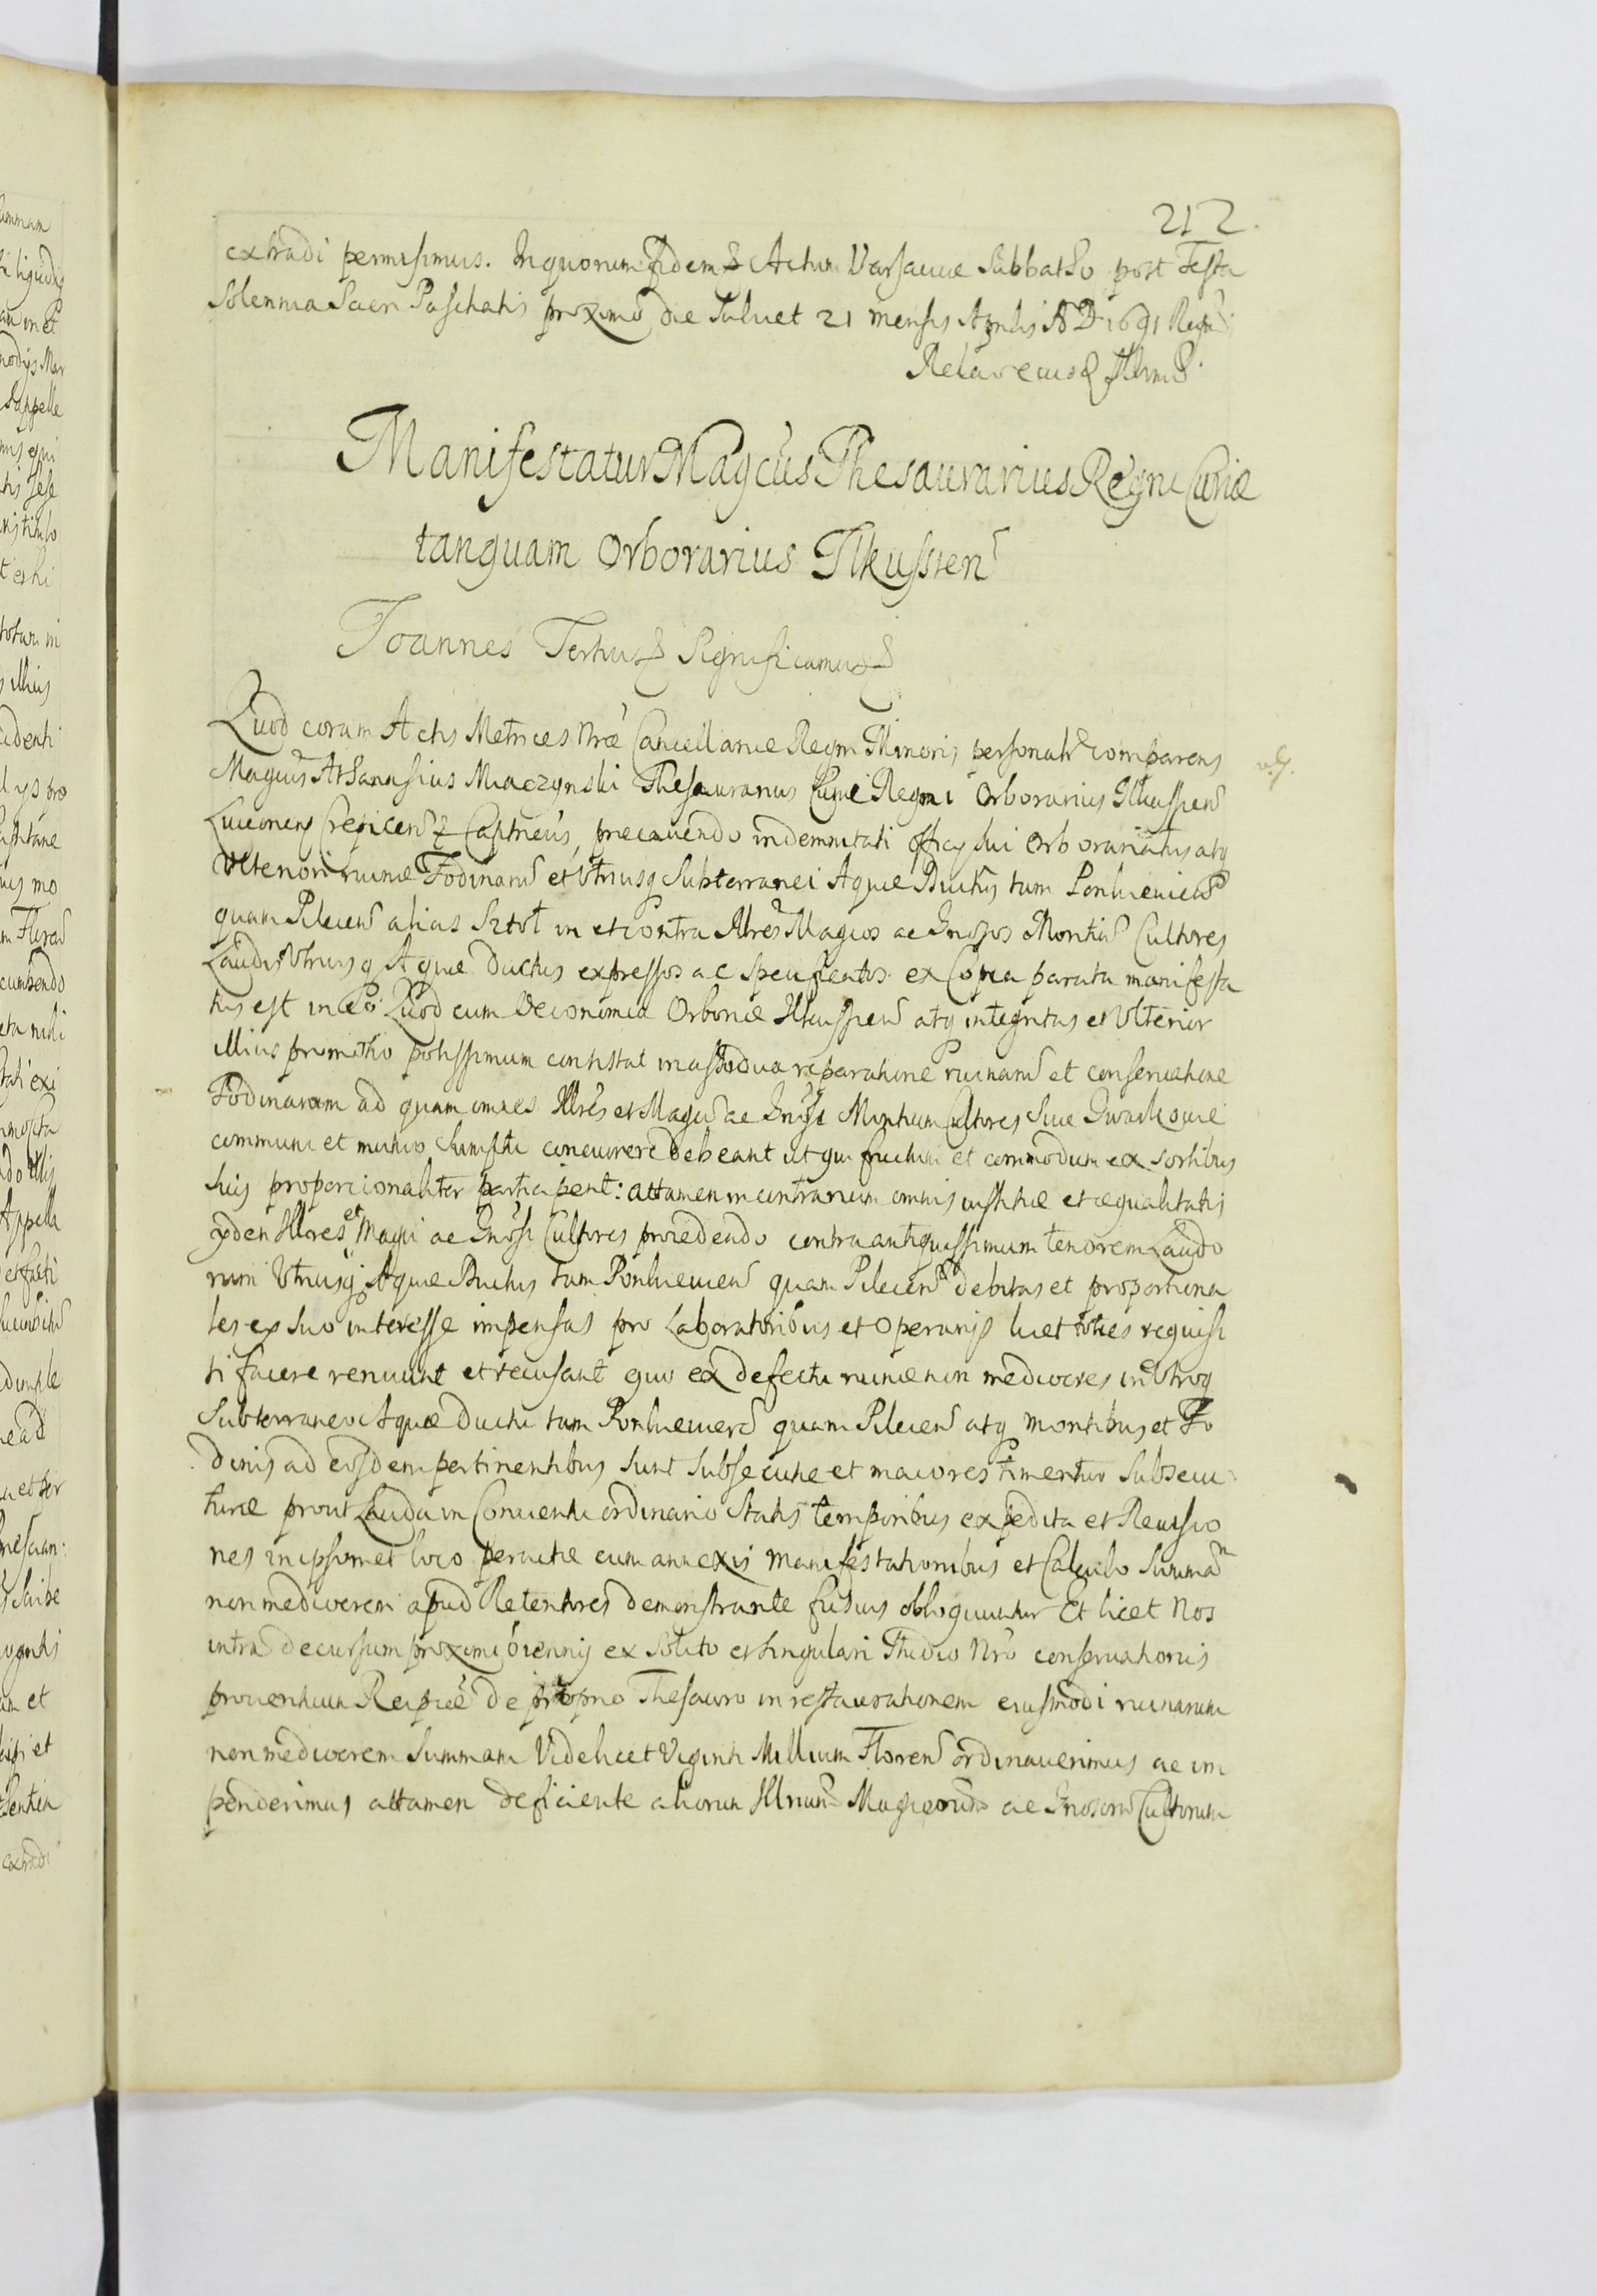 212.
extradi permisimus. In quorum fidem & Actum Varsaviæ Sabbatho post Festa
Solennia Sacri Paschatis proximo die scilicet 21 mensis Aprilis A D 1691 Regni
Relatio eiusd
Manifestatur Magcus Thesaurarius Regni Curiæ
tanquam Orborarius Ilkussien
Joannes Tertius & Significamus &
Quod coram Actis Metrices Nræ Cancellariæ Regni Minoris personalr comparens
Magcus Athanasius Miaczynski Thesaurarius Curiæ Regni Orborarius Ilkussien
Luceoriens Crepicen & Captneus, præcavendo indemnitati officij sui Orborariatus atq
Ulteriori ruinæ Fodinarũ et Utriusq Subterranei Aquæ Ductus tum Ponikieuien
quam Pilecien alias Sztol in et contra Illres Magcos ac Gnosos Montiũ Cultores
Laudis Utriusq Aquæ ductus expressos ac specificatos ex Copia parata manifesta
tus est in eo: Quod cum Oeconomia Orboræ Ilkussien atq integritas et Ulterior
illius promotio potissimum consistat in custodia reparatione ruinarũ et conservatione
Fodinarum ad quam omnes Illres et Magci ac Gnosi Montium Cultores sive Gwarkowie
communi et mutuo sumptu concurrere debeant ut qui fructum et commodum ex sortibus
suis proporcionaliter participent: attamen in contrarium omnis iustitiæ et æqualitatis
ijdem Illres et Magci ac Gnosi Cultores procedendo contra antiquissimum tenorem Laudo
rum Utriusq Aquæ Ductus tum Ponikieuien quam Pilecien debitas et proportiona
les ex suo interesse impensas pro Laboratoribus et Operarijs licet toties requisi
ti facere renuunt et recusant quo ex defectu ruinæ non mediocres in Utroq
Subterraneo Aquæ Ductu tam Ponikieuien quam Pilecien atq montibus et Fo
dinis ad eosdem pertinentibus sunt subsecutæ et maiores timentur subsecu
turæ prout Lauda in Conventu ordinario statis temporibus expedita et Revisio
nes in ipsomet loco peractæ cum annexis manifestationibus et Calculo Summã
non mediocrem apud Retentores demonstrante fusius obloquuntur Et licet Nos
intra decursum proximi biennij ex solito et singulari Studio Nro conservationis
proventuum Reipcæ de proprio Thesauro in restaurationem eiusmodi ruinarum
non mediocrem summam Videlicet Viginti Millium Floren ordinaverimus ac im
penderimus attamen deficiente aliorum Illrium Magcorum ac Gnosorũ Cultorum